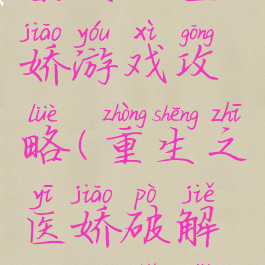 jiāo yóu xì gōng
娇游戏攻
lüè zhòng shēng zhī
略(重生之
yī jiāo pò jiě
医娇破解